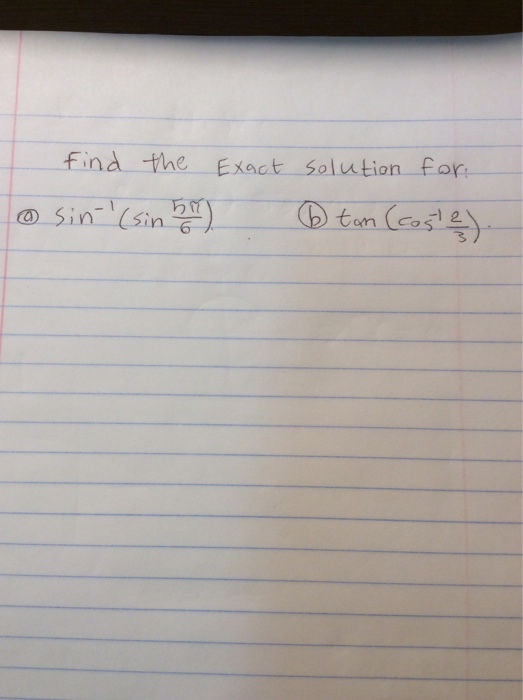 Find the Exact solution for:
ⓐ sin⁻¹(sin 5π/6) ⓑ tan (cos⁻¹ 2/3).